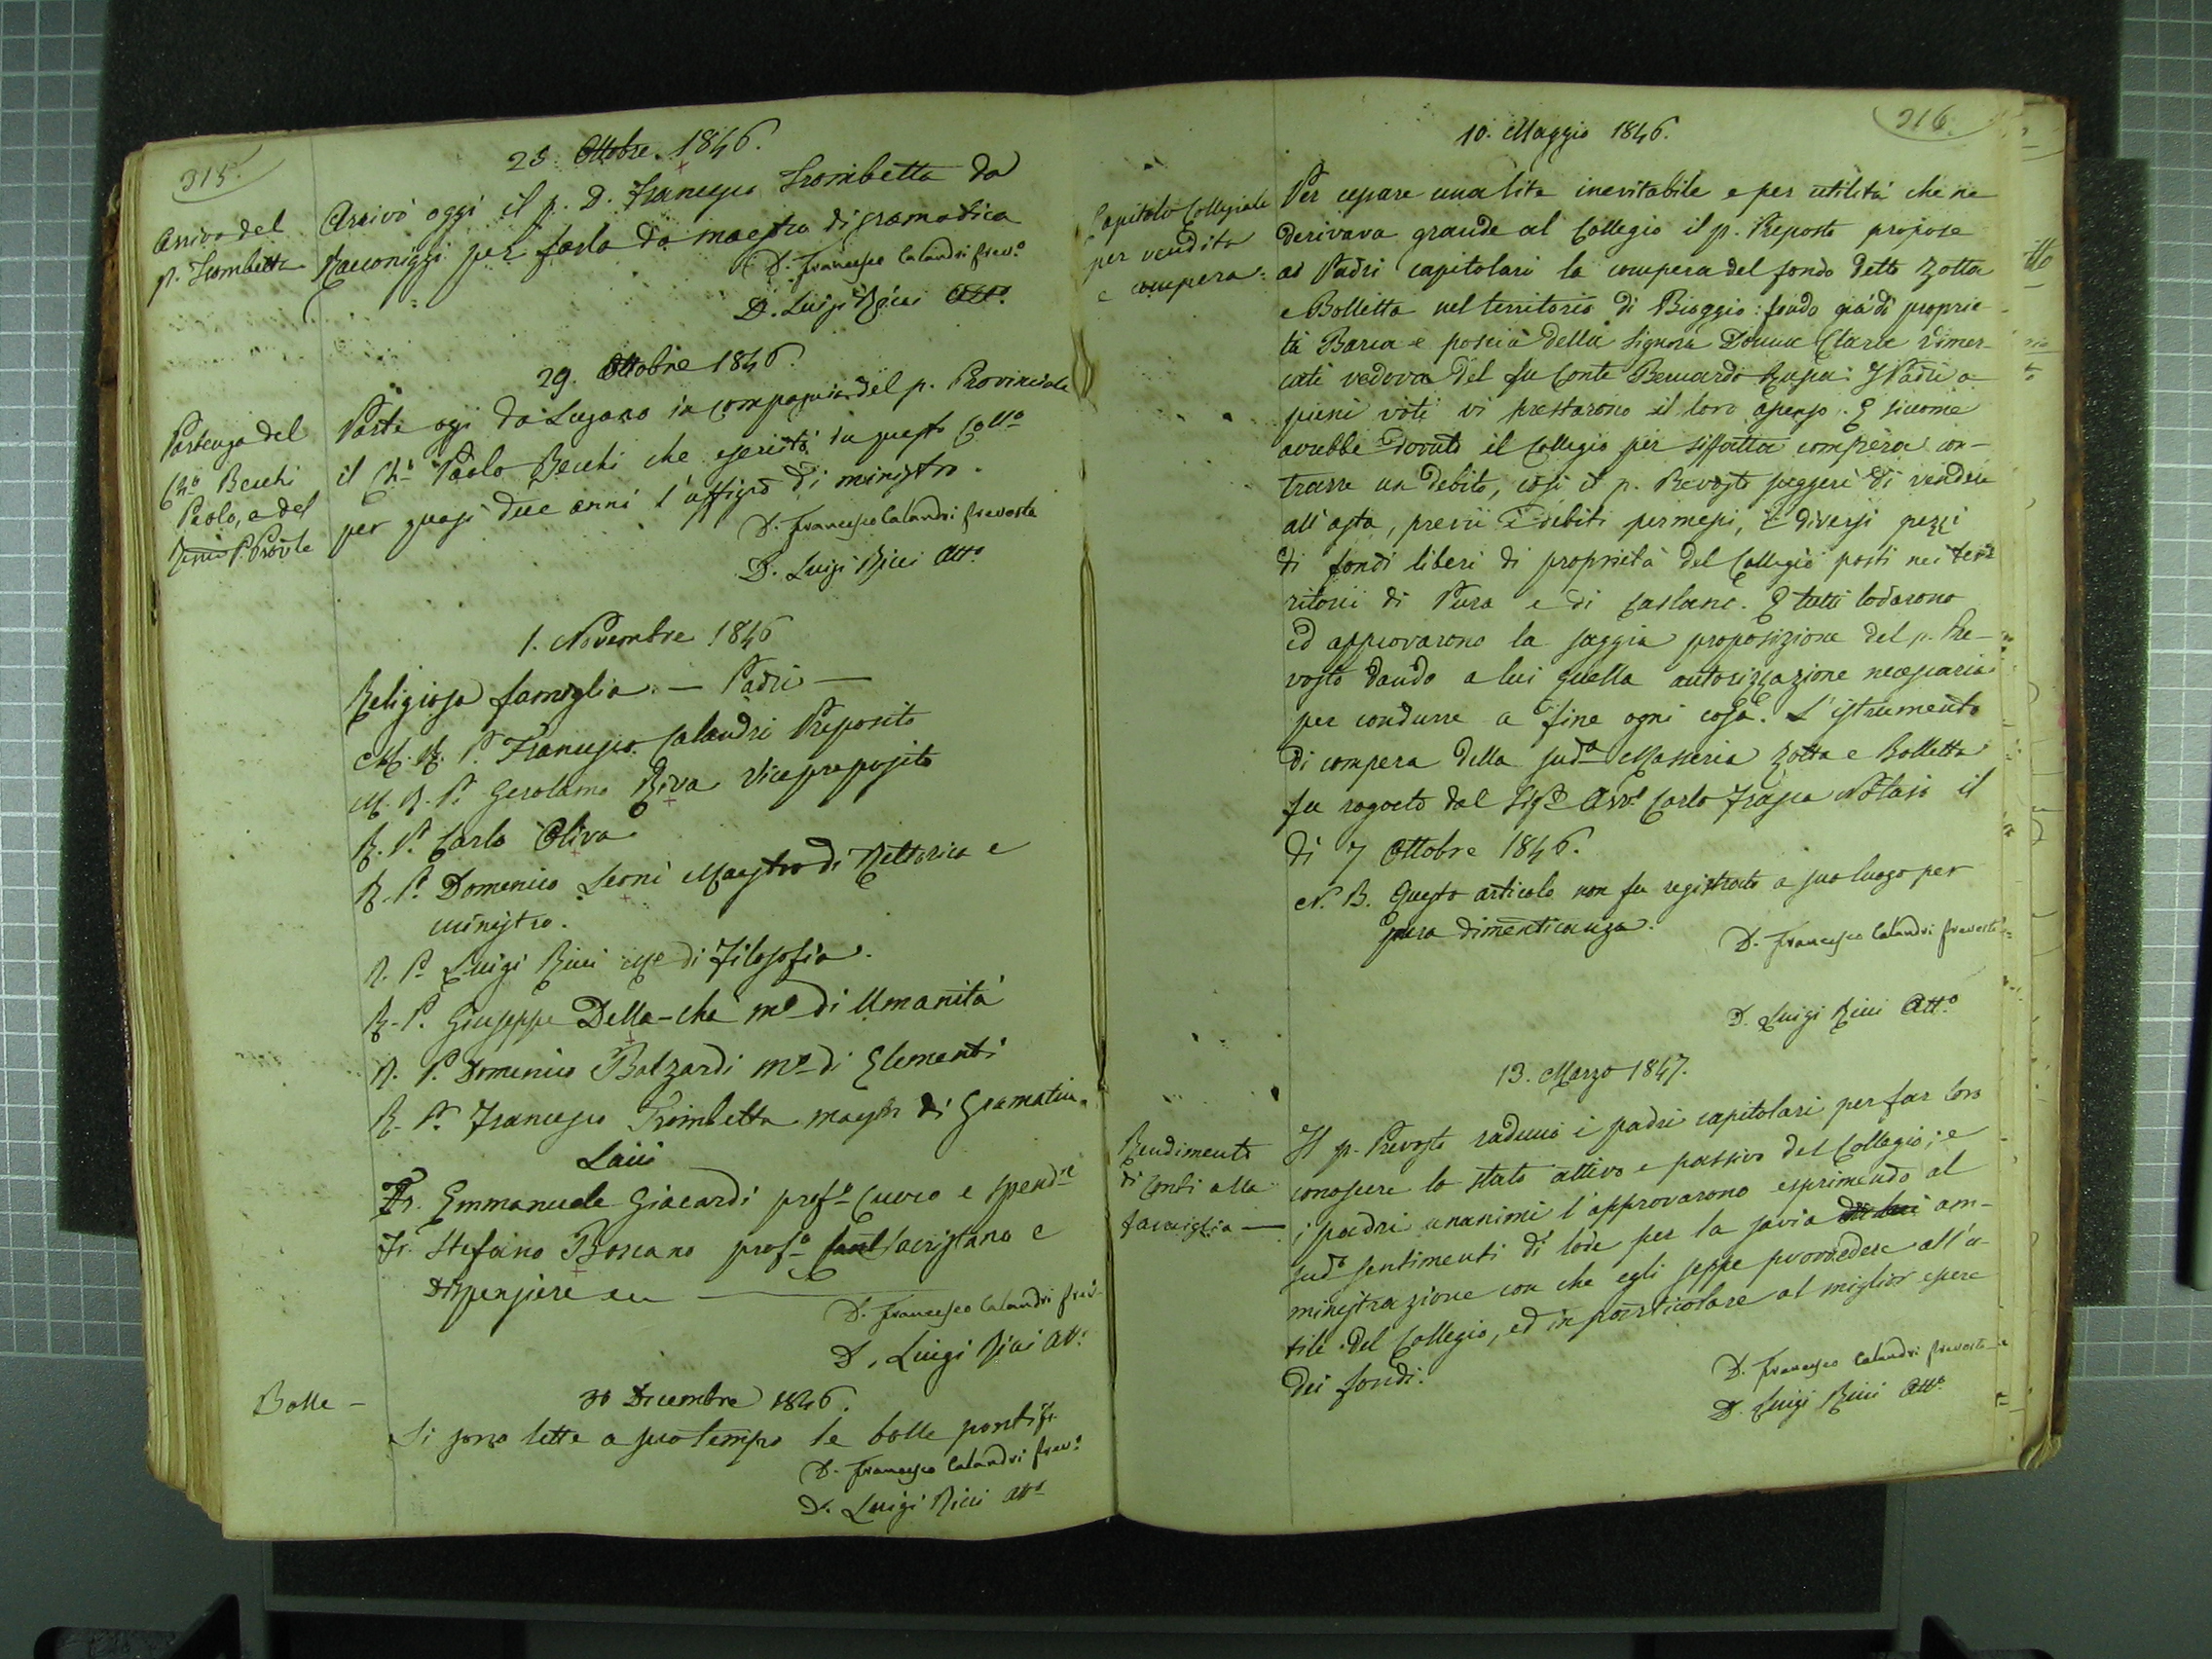 315.
25. Ottobre. 1846.
Arrivo del
p. Trombetta
Arrivò oggi il p. D. Francesco Trombetta da
Racconiggi per farla da maestro di gramatica
D. Francesco Calandri Prev.º
D. Luigi Ricci Att.º
29. Ottobre 1846.
Partenza del
Ch.º Bechi
Paolo, e del
P. Prov.le
Parte ogi da Lugano in compagnia del p. Provinciale
il Ch.º Paolo Bechi che esercitò in questo Coll.º
per quasi due anni l'uffizio di ministro.
D. Francesco Calandri Prevosto
D. Luigi Ricci Att.º
1. Novembre 1846
Religiosa famiglia. — Padri —
M. R. P. Francesco Calandri Preposito
M. R. P. Gerolamo Riva Vicepreposito
R. P. Carlo Oliva
R. P. Domenico Leoni Maestro di Rettorica e
ministro.
R. P. Luigi Ricci di Filosofia.
R. P. Giuseppe Della-chà m.º di Umanità
R. P. Domenico Balzardi m.º di Elementi
R. P. Francesco Trombetta maestro di Gramatica.
Laici
Fr. Emmanuele Giacardi prof.º Cuoco e spend.e
Fr. Stefano Boscano prof.º sacristano e
dispensiere
D. Francesco Calandri Prev.
D. Luigi Ricci Att.º
Bolle —
30 Dicembre 1846.
Si sono lette a suo tempo le bolle pontif.
D. Francesco Calandri Prev.º
D. Luigi Ricci Att.º
316.
10. Maggio 1846.
Capitolo Collegiale
per vendita
e compera.
Per cessare una lite inevitabile e per utilità che ne
derivava grande al Collegio il p. Preposto propose
ai Padri capitolari la compera del fondo detto Zotta
e Bolletta nel territorio di Bioggio: fondo già di proprie-
tà Barca e poscia della Signora Donna Clara Vimer-
cati vedova del fu Conte Bernardo Rusca: I Padri a
pieni voti vi prestarono il loro assenso. E siccome
avrebbe dovuto il Collegio per siffatta compera con-
trarre un debito, così il p. Prevosto suggerì di vendere
all'asta, previi i debiti permessi, diversi pezzi
di fondi liberi di proprietà del Collegio posti nei ter-
ritorii di Pura e di Caslano. E tutti lodarono
ed approvarono la saggia proposizione del p. Pre-
vosto dando a lui quella autorizzazione necessaria
per condurre a fine ogni cosa. L'istrumento
di compera della sud.a Masseria Zotta e Bolletta
fu rogato dal Sig.r Avv.º Carlo Frasca Notajo il
dì 7 Ottobre 1846.
N. B. Questo articolo non fu registrato a suo luogo per
pura dimenticanza.
D. Francesco Calandri Prevosto
D. Luigi Ricci Att.º
13. Marzo 1847.
Rendimento
di Conti alla
famiglia —
Il p. Prevosto radunò i padri capitolari per far loro
conoscere lo stato attivo e passivo del Collegio; e
i padri unanimi l'approvarono esprimendo al
sud.º sentimenti di lode per la savia am-
ministrazione con che egli seppe provvedere all'u-
tile del Collegio, ed in particolare al miglior essere
dei fondi.
D. Francesco Calandri Prevosto
D. Luigi Ricci Att.º